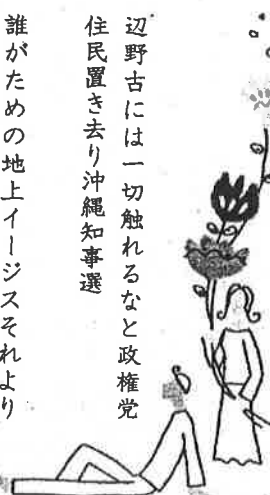 辺野古には一切触れるなと政権党
住民置き去り沖縄知事選
誰がための地上イージスそれより